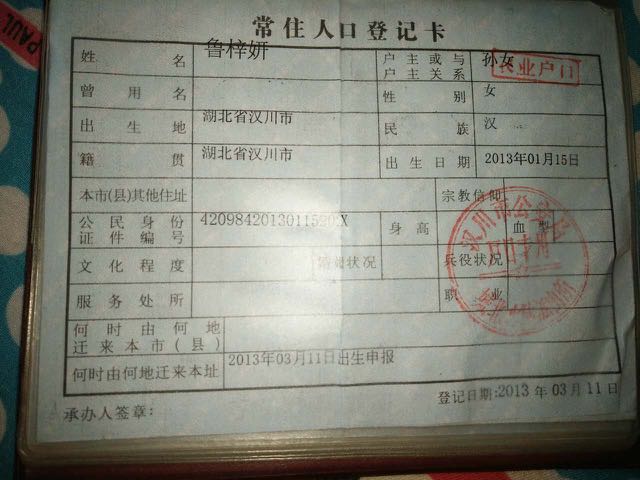 PAUL
常住人口登记卡
姓名 鲁梓妍 户主或与户主关系 孙女
农业户口
曾用名 性别 女
出生地 湖北省汉川市 民族 汉
籍贯 湖北省汉川市 出生日期 2013年01月15日
本市(县)其他住址 宗教信仰
公民身份证件编号 身高 血型
文化程度 婚姻状况 兵役状况
服务处所 职业
何时由何地迁来本市(县)
何时由何地迁来本址 2013年03月11日出生申报
登记日期:2013年03月11日
承办人签章:
汉川市公安局